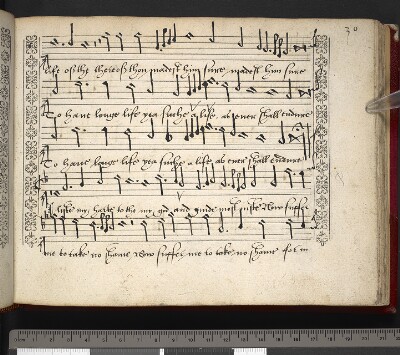 30
life of the thou madest him sure madest him sure
To have longe life yea suche a life as ever shall endure
To have longe life yea suche a life as ever shall endure
my harte to the my god and guide most juste Now suffer
me to take no shame Now suffer me to take no shame for in